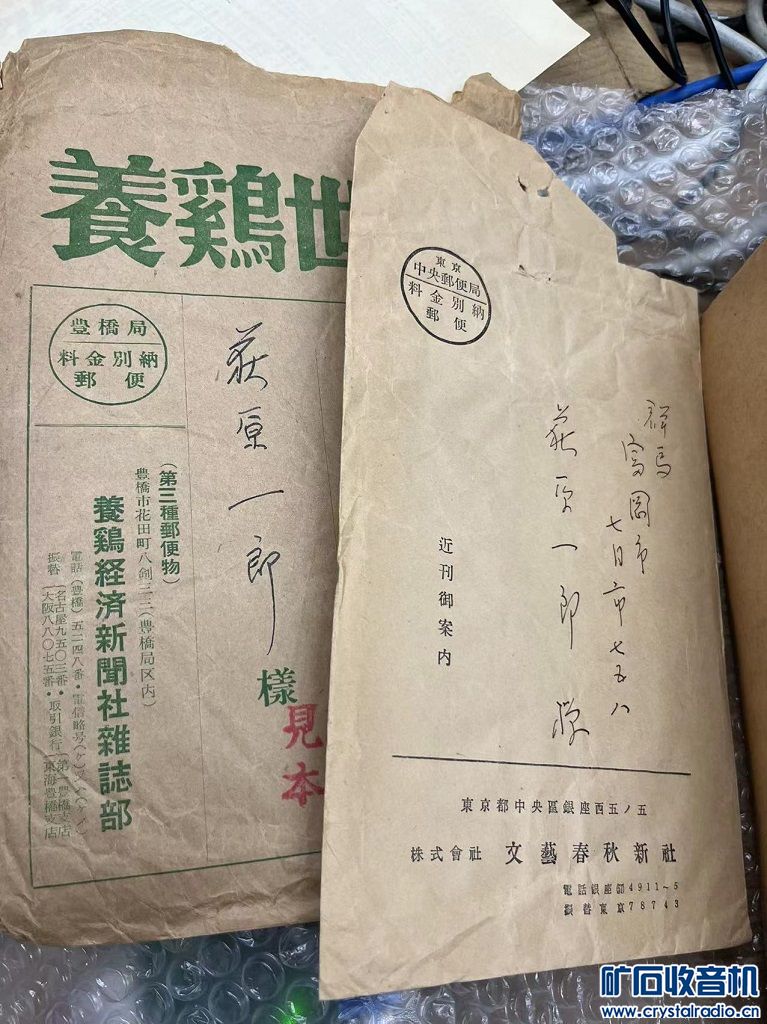 養鶏世
豊橋局
料金別納
郵便
萩原一郎
様
見本
(第三種郵便物)
豊橋市花田町八剣三三(豊橋局区内)
養鶏経済新聞社雑誌部
電話(豊橋)五二四八番・電信略号(ケ)
振替
名古屋九五〇三番
大阪八八〇七五番
・取引銀行
第一豊橋支店
東海豊橋支店
東京
中央郵便局
料金別納
郵便
群馬
富岡市
七日市七五八
萩原一郎様
近刊御案内
東京都中央區銀座西五ノ五
株式會社 文藝春秋新社
電話銀座 4911~5
振替東京78743
矿石收音机
www.crystalradio.cn